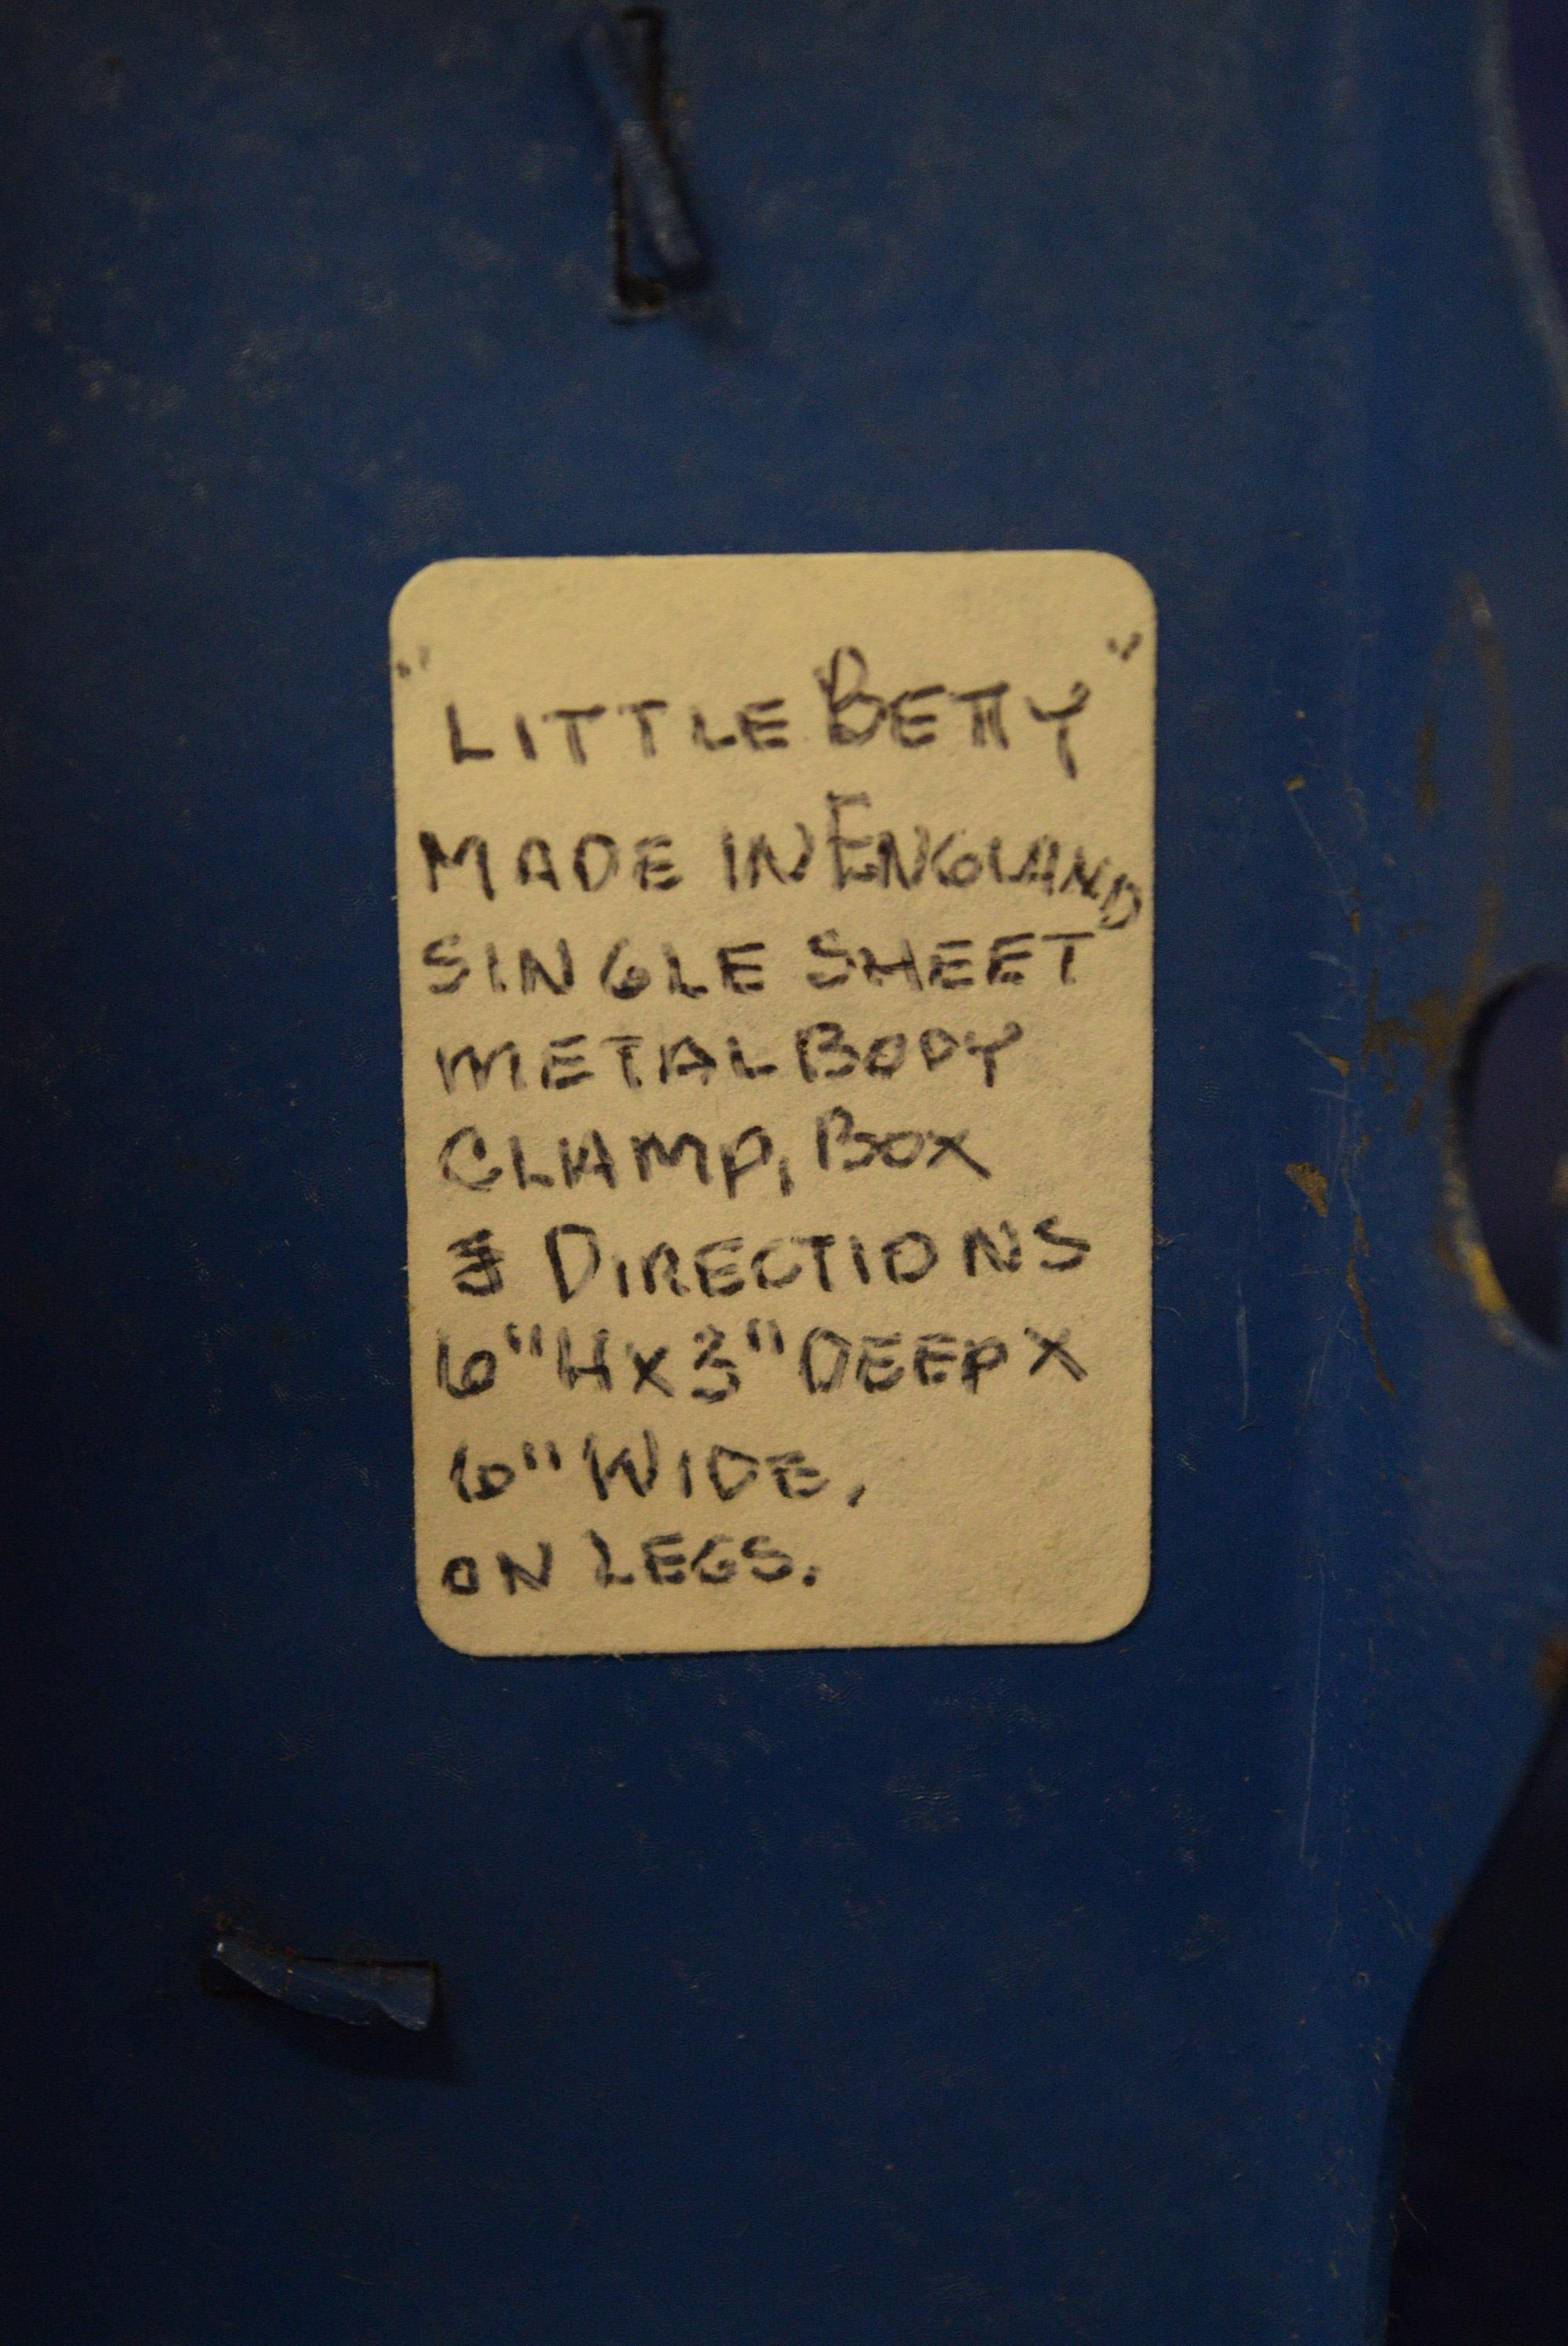 "LITTLE BETTY"
MADE IN ENGLAND
SINGLE SHEET
METAL BODY
CLAMP, BOX
DIRECTIONS
6" H X 3" DEEP X
6" WIDE,
ON LEGS.